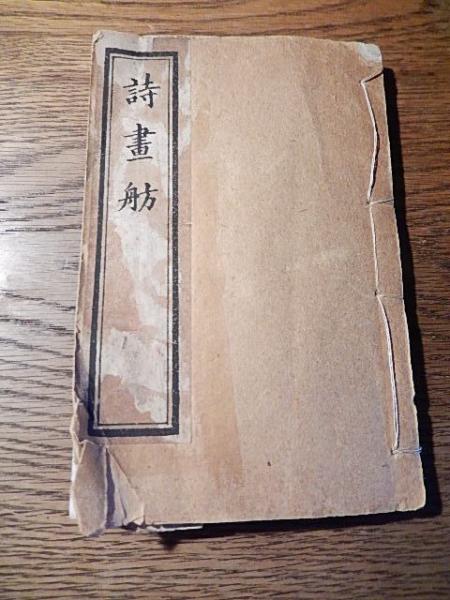 詩畫舫